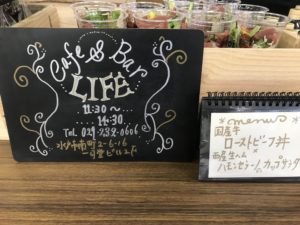 Cafe & Bar
LIFE
11:30〜
14:30
Tel. 029-232-0606
水戸市南町2-6-16
ビル2F
*menu*
国産牛
ローストビーフ丼
×
ハモンセラーノカップサラダ